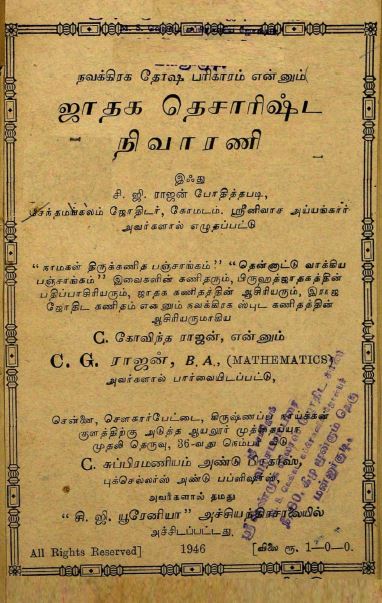 நவக்கிரக தோஷ பரிகாரம் என்னும்
ஜாதக தெசாரிஷ்ட
நிவாரணி
இஃது
சி. ஜி. ராஜன் போதித்தபடி,
சேந்தமங்கலம் ஜோதிடர், கோமடம். ஸ்ரீனிவாச அய்யங்கார்
அவர்களால் எழுதப்பட்டு
“ நாமகள் திருக்கணித பஞ்சாங்கம் ” “ தென்னாட்டு வாக்கிய
பஞ்சாங்கம் ” இவைகளின் கணிதரும், பிருஹத்ஜாதகத்தின்
பதிப்பாசிரியரும், ஜாதக கணிதத்தின் ஆசிரியரும்,
ஜோதிட கணிதம் எனும் நவக்கிரக ஸ்புட கணிதத்தின்
ஆசிரியருமாகிய
C. கோவிந்த ராஜன், என்னும்
C. G. ராஜன், B. A., (MATHEMATICS)
அவர்களால் பார்வையிடப்பட்டு,
சென்னை, சௌகார்பேட்டை, கிருஷ்ணப்ப நாய்க்கன்
குளத்திற்கு அடுத்த ஆயலூர் முத்தைய்யா
முதலி தெருவு, 36-வது நெம்பர் வீடு,
C. சுப்பிரமணியம் அண்டு பிரதர்ஸ்,
புக்செல்லர்ஸ் அண்டு பப்ளிஷர்ஸ்,
அவர்களால் தமது
“ சி. ஜி. யூரேனியா ” அச்சியந்திரசாலையில்
அச்சிடப்பட்டது.
All Rights Reserved] 1946 [விலை ரூ. 1—0—0.
மன்னார்குடி.